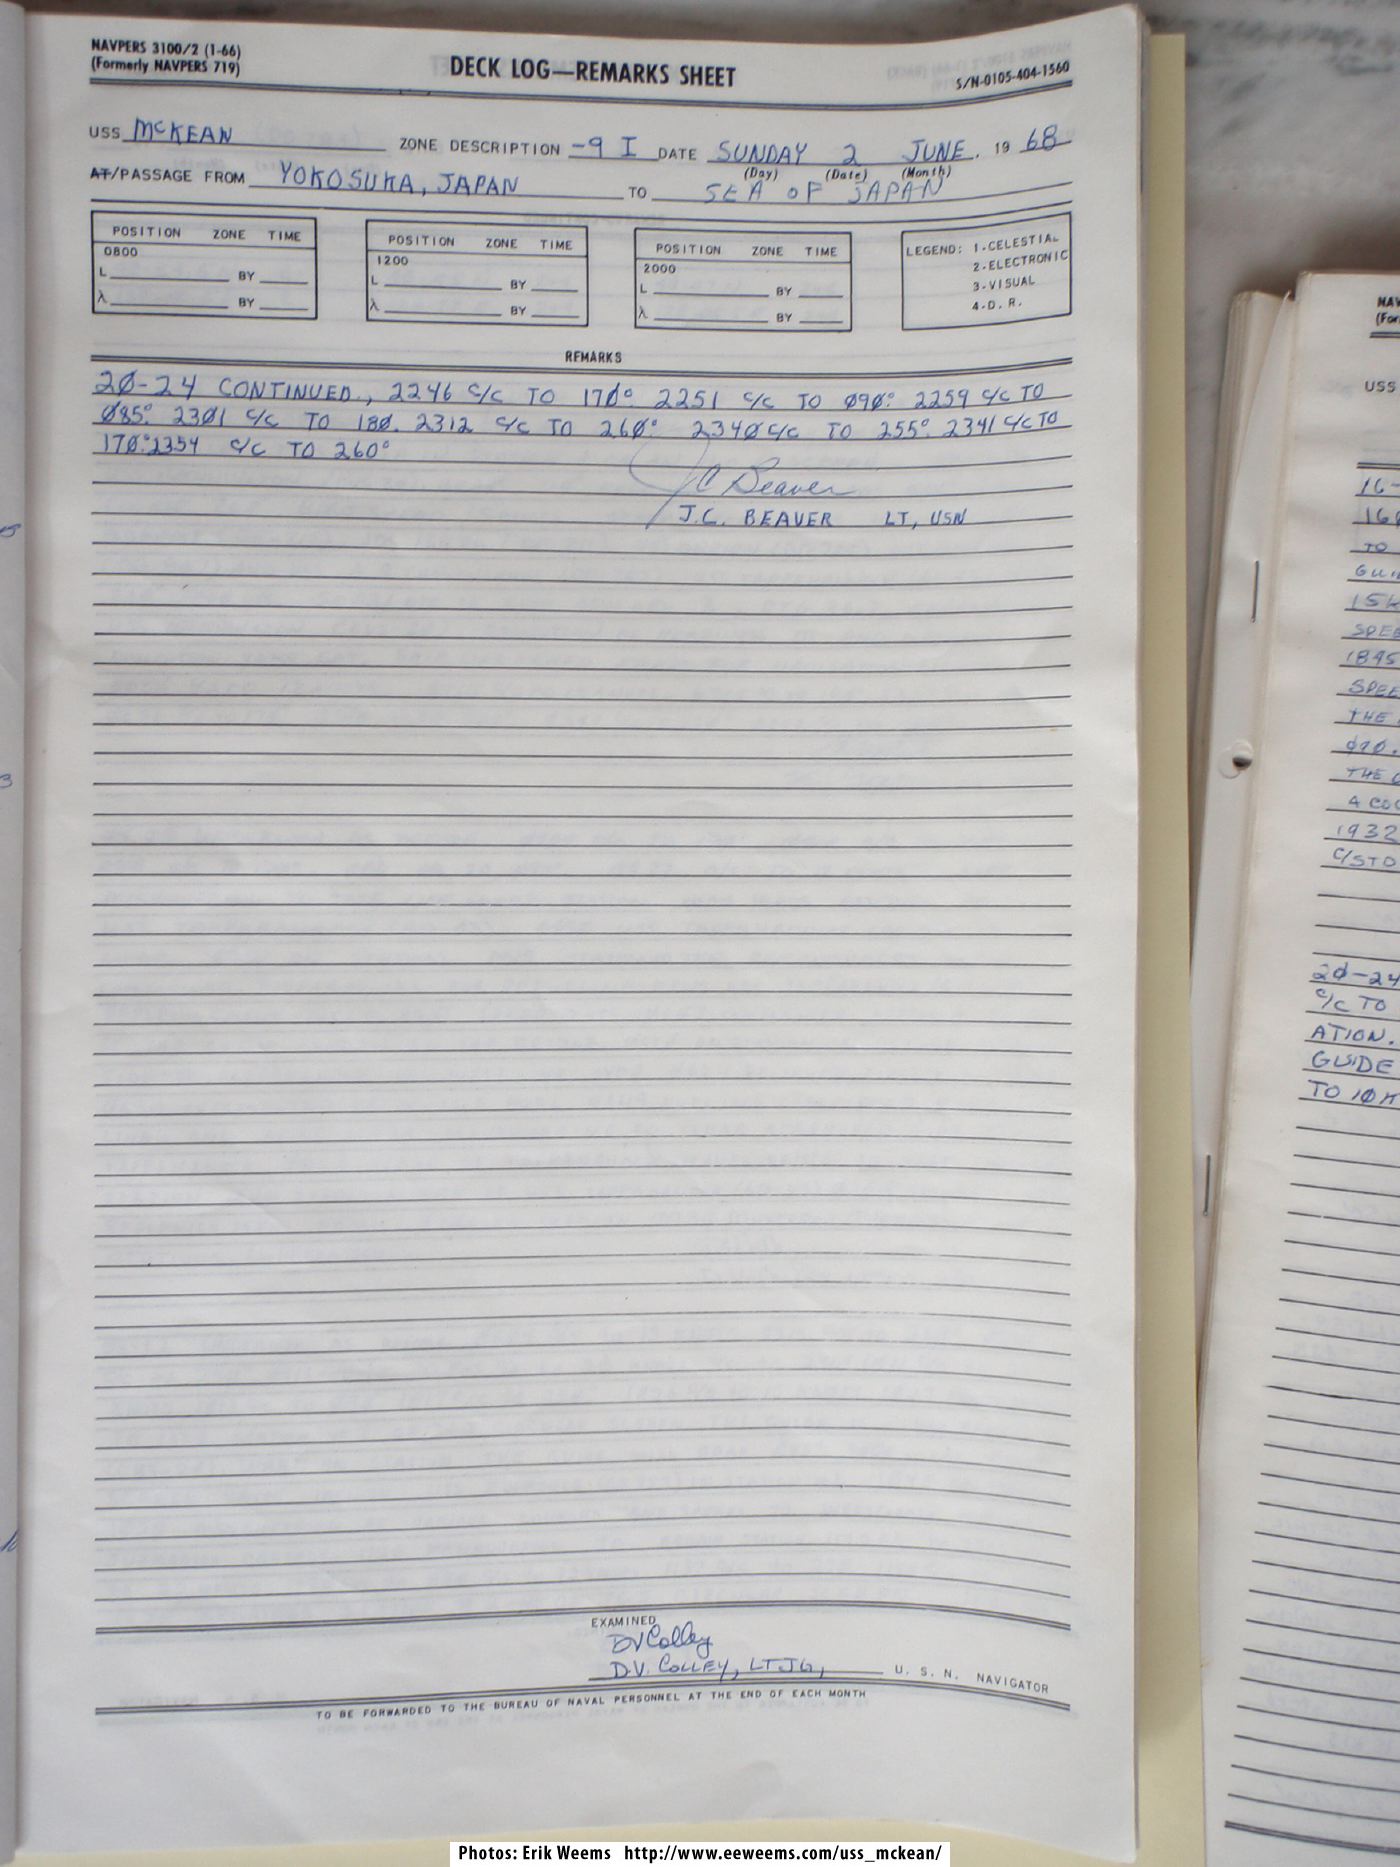 NAVPERS 3100/2 (1-66)
(Formerly NAVPERS 719)
DECK LOG—REMARKS SHEET
S/N-0105-404-1560
USS McKEAN ZONE DESCRIPTION -9 I DATE SUNDAY 2 JUNE, 19 68
(Day) (Date) (Month)
AT/PASSAGE FROM YOKOSUKA, JAPAN TO SEA OF JAPAN
POSITION ZONE TIME
0800
L BY
λ BY
POSITION ZONE TIME
1200
L BY
λ BY
POSITION ZONE TIME
2000
L BY
λ BY
LEGEND: 1-CELESTIAL
2-ELECTRONIC
3-VISUAL
4-D. R.
REMARKS
2Ø-24 CONTINUED., 2246 C/C TO 17Ø° 2251 C/C TO Ø9Ø° 2259 C/C TO
Ø85° 23Ø1 C/C TO 18Ø. 2312 C/C TO 26Ø° 234Ø C/C TO 255°. 2341 C/C TO
17Ø° 2354 C/C TO 260°
JC Beaver
J.C. BEAVER LT, USN
EXAMINED
DV Colley
D.V. COLLEY, LTJG, U. S. N. NAVIGATOR
TO BE FORWARDED TO THE BUREAU OF NAVAL PERSONNEL AT THE END OF EACH MONTH
USS
16-
TO
SPEE
1845
SPEE
THE
Ø9Ø.
THE
A
1932
C/S TO
2Ø-24
C/C TO
ATION.
GUIDE
TO 1Ø
Photos: Erik Weems http://www.eeweems.com/uss_mckean/